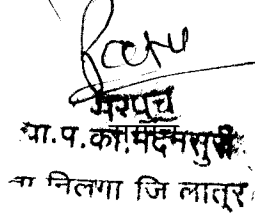 सरपंच
ग्रा.प.का.मदनसुरी
ता निलगा जि लातूर